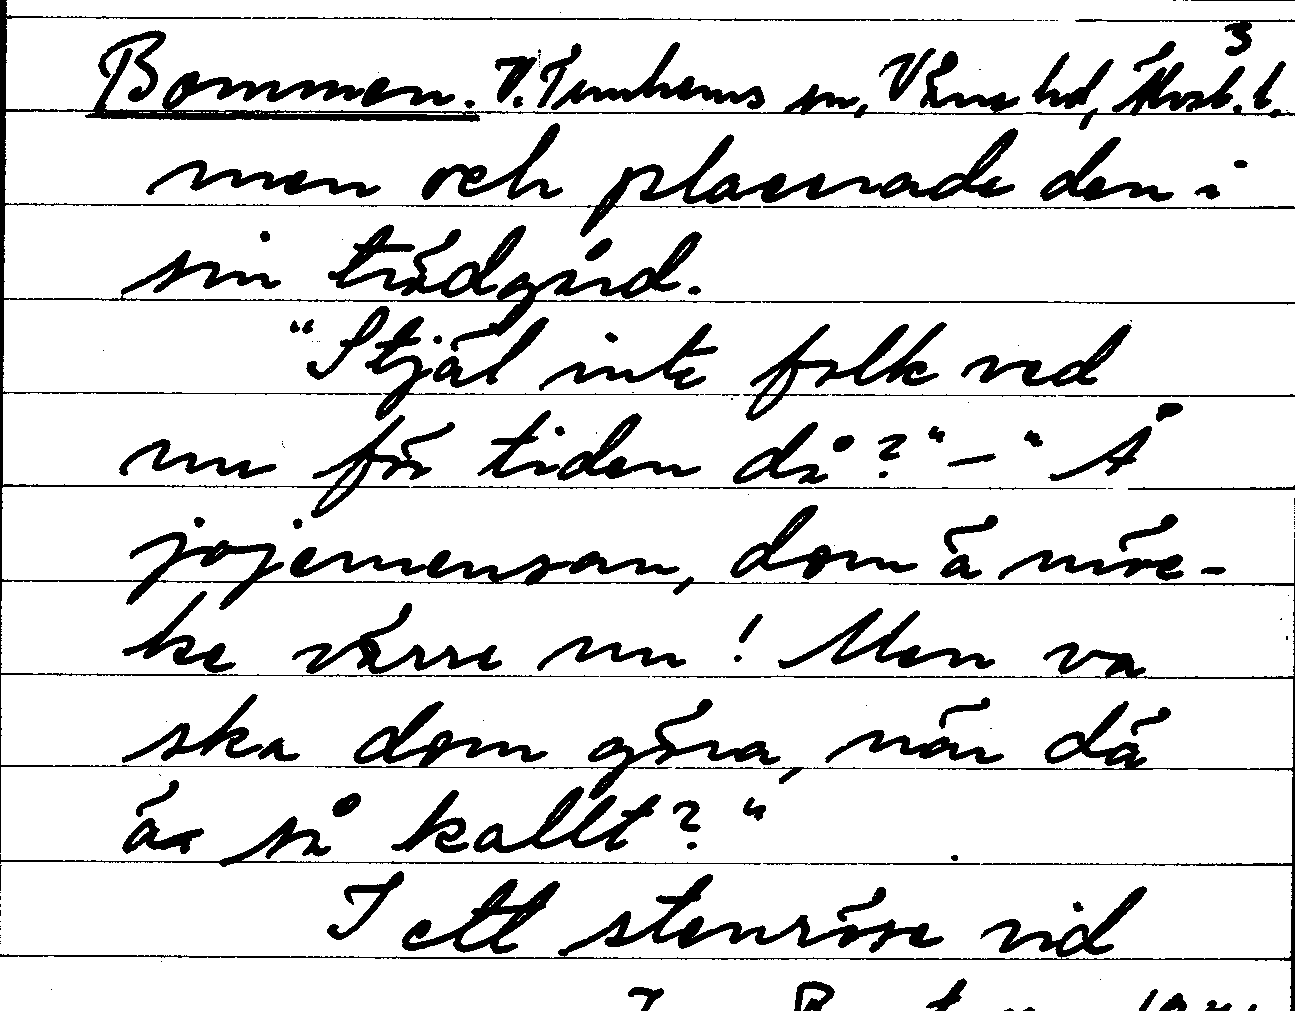 3
Bommen. V. Tunhems sn, Väne hd, Älvsb. l.
men och placerade den i
sin trädgård.
"Stjäl inte folk ved
nu för tiden då?" – "Å
jojemensan, dom ä möe-
ke värre nu! Men va
ska dom göra, när dä
äa så kallt?"
I ett stenröse vid